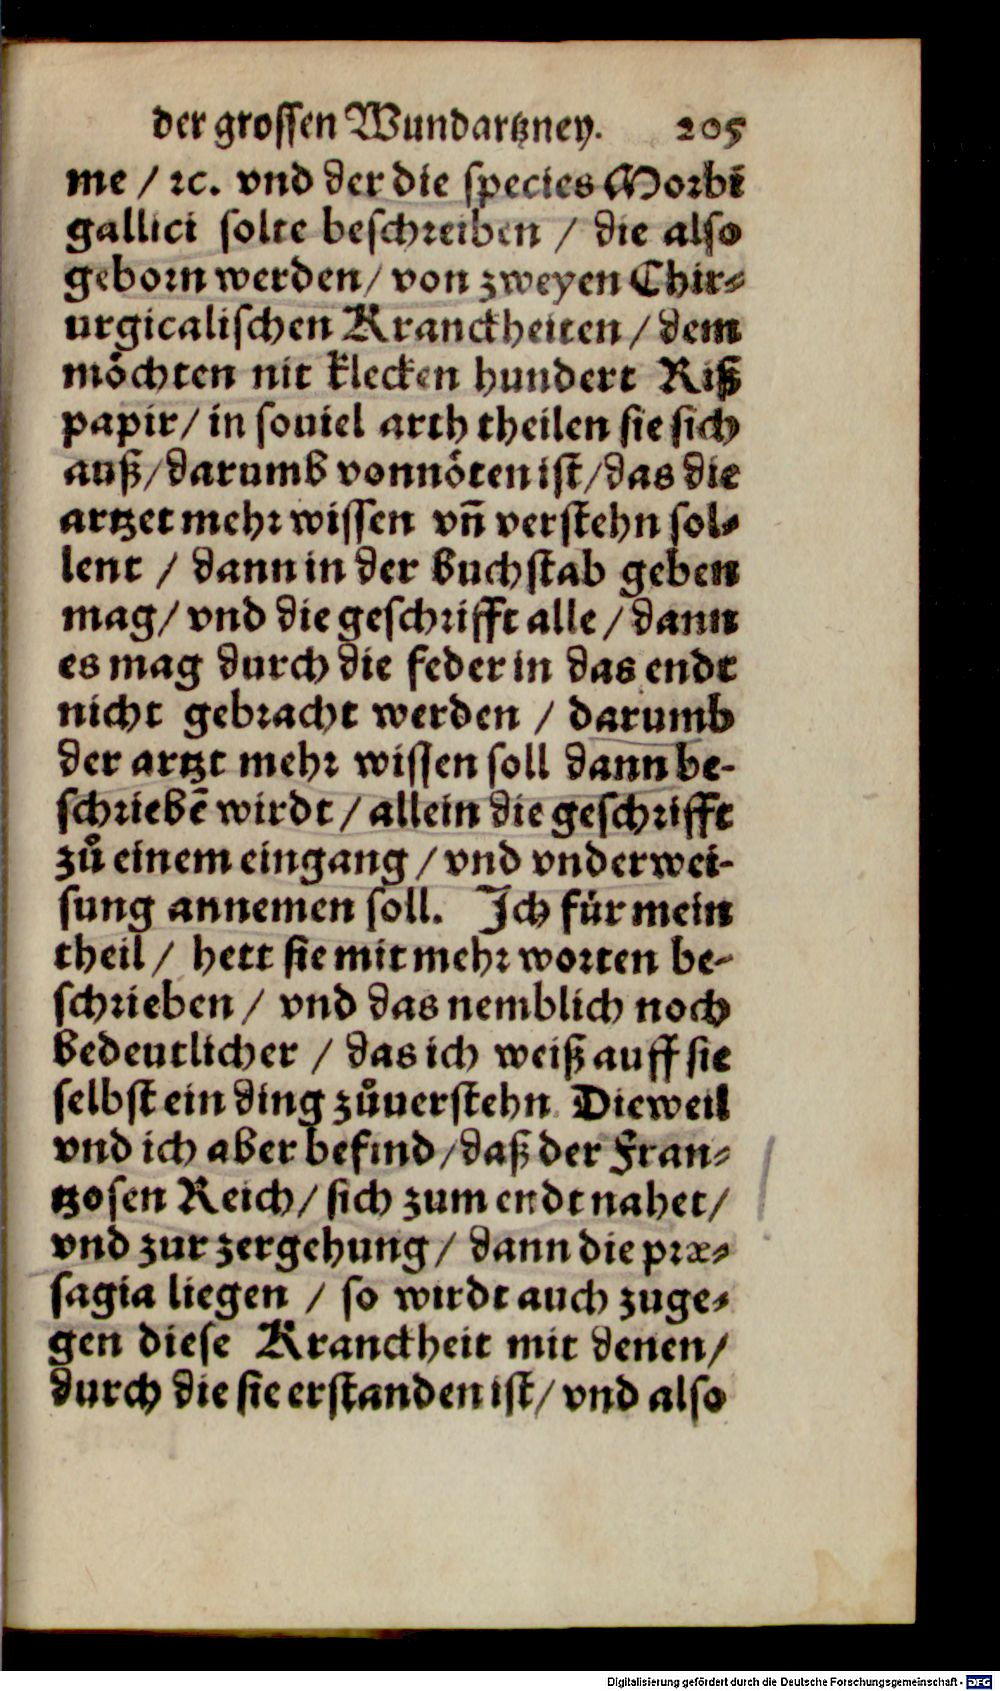 der grossen Wundartzney. 205
me / ꝛc. vnd der die species Morbi
gallici solte beschreiben / die also
geborn werden / von zweyen Chir⸗
urgicalischen Kranckheiten / dem
moͤchten nit klecken hundert Riß
papir / in souiel arth theilen sie sich
auß / darumb vonnoͤten ist / das die
artzet mehr wissen vñ verstehn sol⸗
lent / dann in der buchstab geben
mag / vnd die geschrifft alle / dann
es mag durch die feder in das endt
nicht gebracht werden / darumb
der artzt mehr wissen soll dann be-
schriebẽ wirdt / allein die geschrifft
zuͦ einem eingang / vnd vnderwei-
sung annemen soll. Ich für mein
theil / hett sie mit mehr worten be-
schrieben / vnd das nemblich noch
bedeutlicher / das ich weiß auff sie
selbst ein ding zuͦuerstehn. Dieweil
vnd ich aber befind / daß der Fran⸗
tzosen Reich / sich zum endt nahet /
vnd zur zergehung / dann die præ⸗
sagia liegen / so wirdt auch zuge⸗
gen diese Kranckheit mit denen /
durch die sie erstanden ist / vnd also
Digitalisierung gefördert durch die Deutsche Forschungsgemeinschaft - DFG